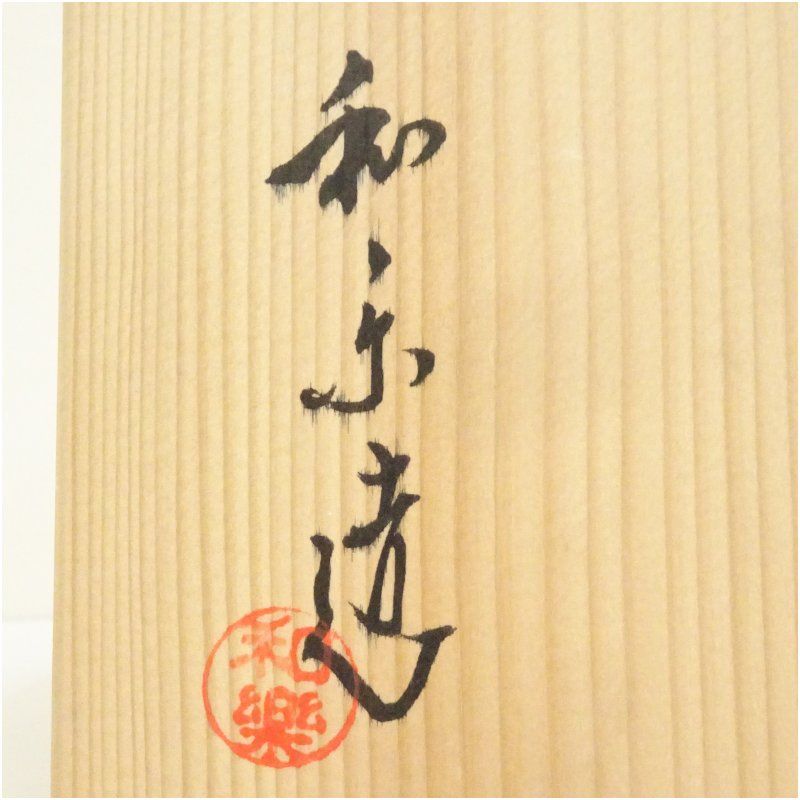 和楽造
和樂